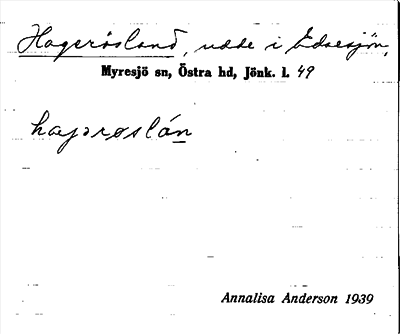 Hagerösland, udde i Edsesjön,
Myresjö sn, Östra hd, Jönk. l. 49
hagərøslán
Annalisa Anderson 1939